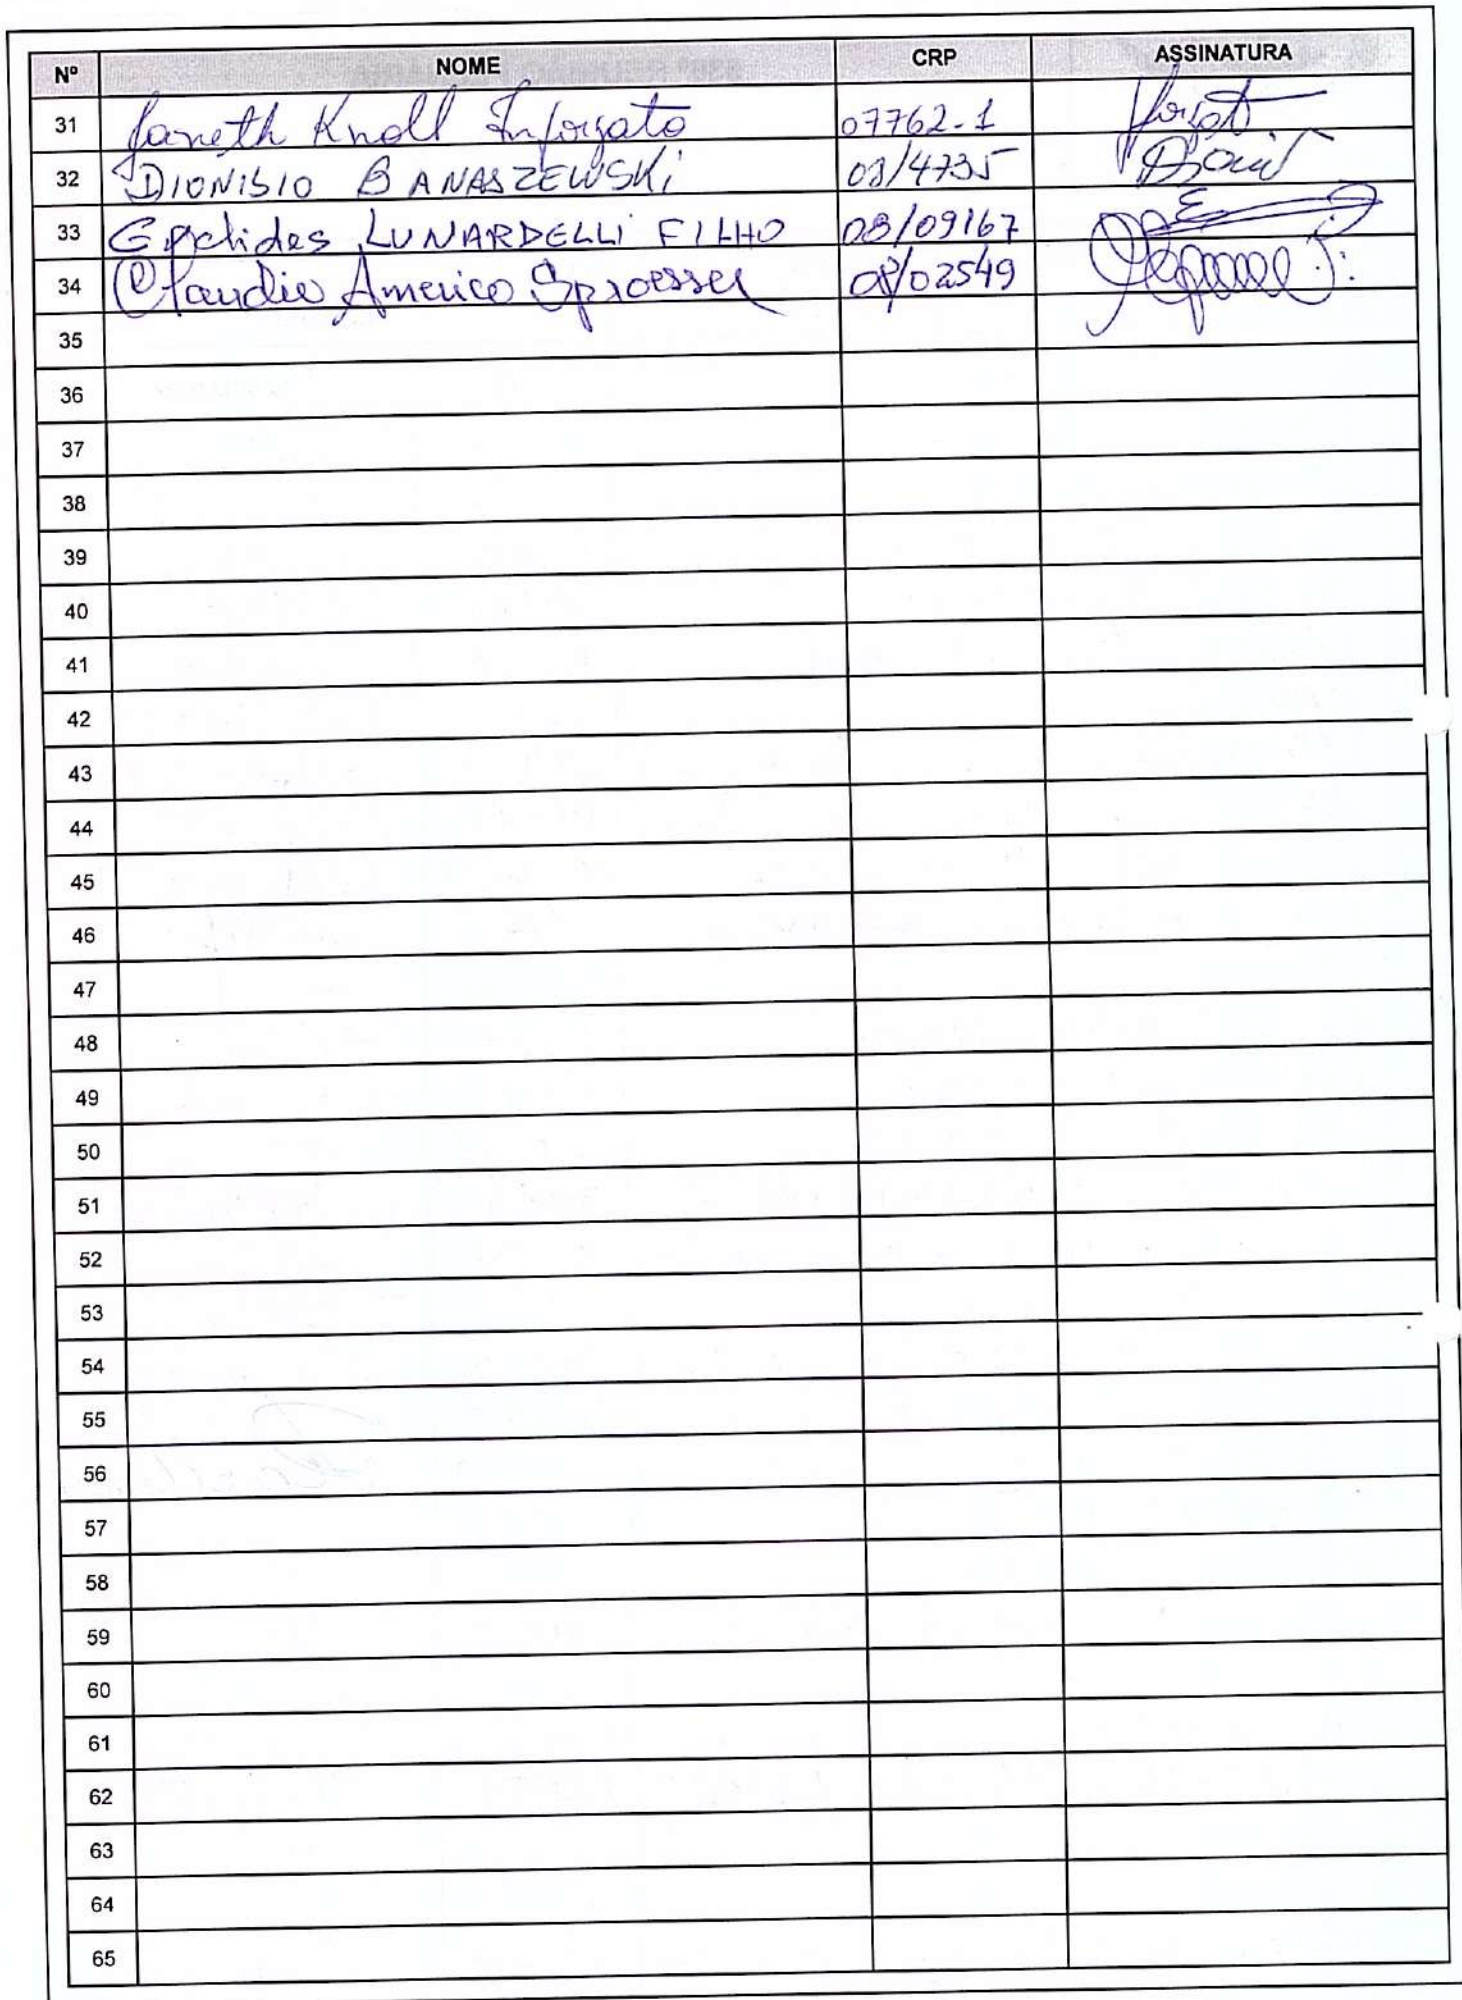 Nº NOME CRP ASSINATURA
31 Janeth Knoll Inforzato 07762-1
32 DIONISIO BANASZEWSKI 08/4735
33 LUNARDELLI FILHO 08/09167
34 Claudio Americo Sproesser 08/02549
35
36
37
38
39
40
41
42
43
44
45
46
47
48
49
50
51
52
53
54
55
56
57
58
59
60
61
62
63
64
65